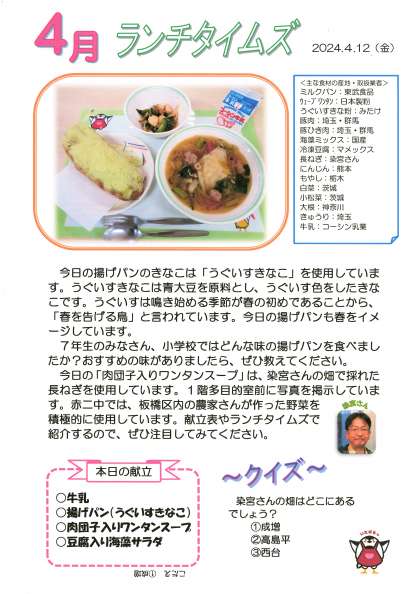 4月 ランチタイムズ
2024.4.12（金）
＜主な食材の産地・取扱業者＞
ミルクパン：東武食品
ｳｪｰﾌﾞﾜﾝﾀﾝ：日本製粉
うぐいすきな粉：みたけ
豚肉：埼玉・群馬
豚ひき肉：埼玉・群馬
海藻ミックス：国産
冷凍豆腐：マメックス
長ねぎ：染宮さん
にんじん：熊本
もやし：栃木
白菜：茨城
小松菜：茨城
大根：神奈川
きゅうり：埼玉
牛乳：コーシン乳業
今日の揚げパンのきなこは「うぐいすきなこ」を使用していま
す。うぐいすきなこは青大豆を原料とし、うぐいす色をしたきな
こです。うぐいすは鳴き始める季節が春の初めであることから、
「春を告げる鳥」と言われています。今日の揚げパンも春をイメ
ージしています。
７年生のみなさん、小学校ではどんな味の揚げパンを食べまし
たか？おすすめの味がありましたら、ぜひ教えてください。
今日の「肉団子入りワンタンスープ」は、染宮さんの畑で採れた
長ねぎを使用しています。１階多目的室前に写真を掲示していま
す。赤二中では、板橋区内の農家さんが作った野菜を
積極的に使用しています。献立表やランチタイムズで
紹介するので、ぜひ注目してみてください。
染宮さん
本日の献立
○牛乳
○揚げパン(うぐいすきなこ)
○肉団子入りワンタンスープ
○豆腐入り海藻サラダ
～クイズ～
染宮さんの畑はどこにある
でしょう？
①成増
②高島平
③西台
こたえ ①成増